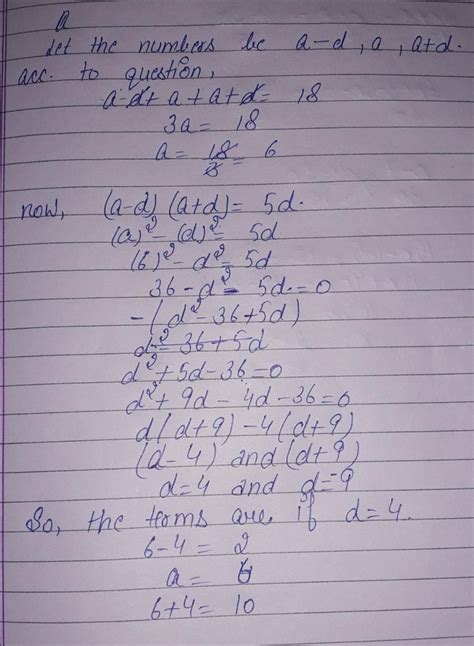 Q
let the numbers be a-d, a, a+d.
acc. to question,
a-d+ a + a+d = 18
3a = 18
a = 18/3 = 6
now, (a-d) (a+d) = 5d.
(a)² - (d)² = 5d
(6)² - d² = 5d
36 - d² - 5d. = 0
-(d² - 36 + 5d)
d² - 36 + 5d
d² + 5d - 36 = 0
d² + 9d - 4d - 36 = 0
d(d+9) - 4(d+9)
(d-4) and (d+9)
d = 4 and d = -9
So, the terms are if d = 4.
6-4 = 2
a = 6
6+4 = 10